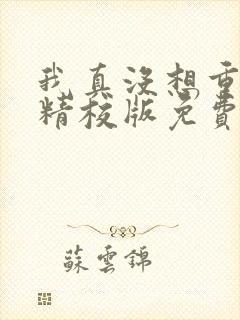 我真没想重
精校版免費
蘇雲錦